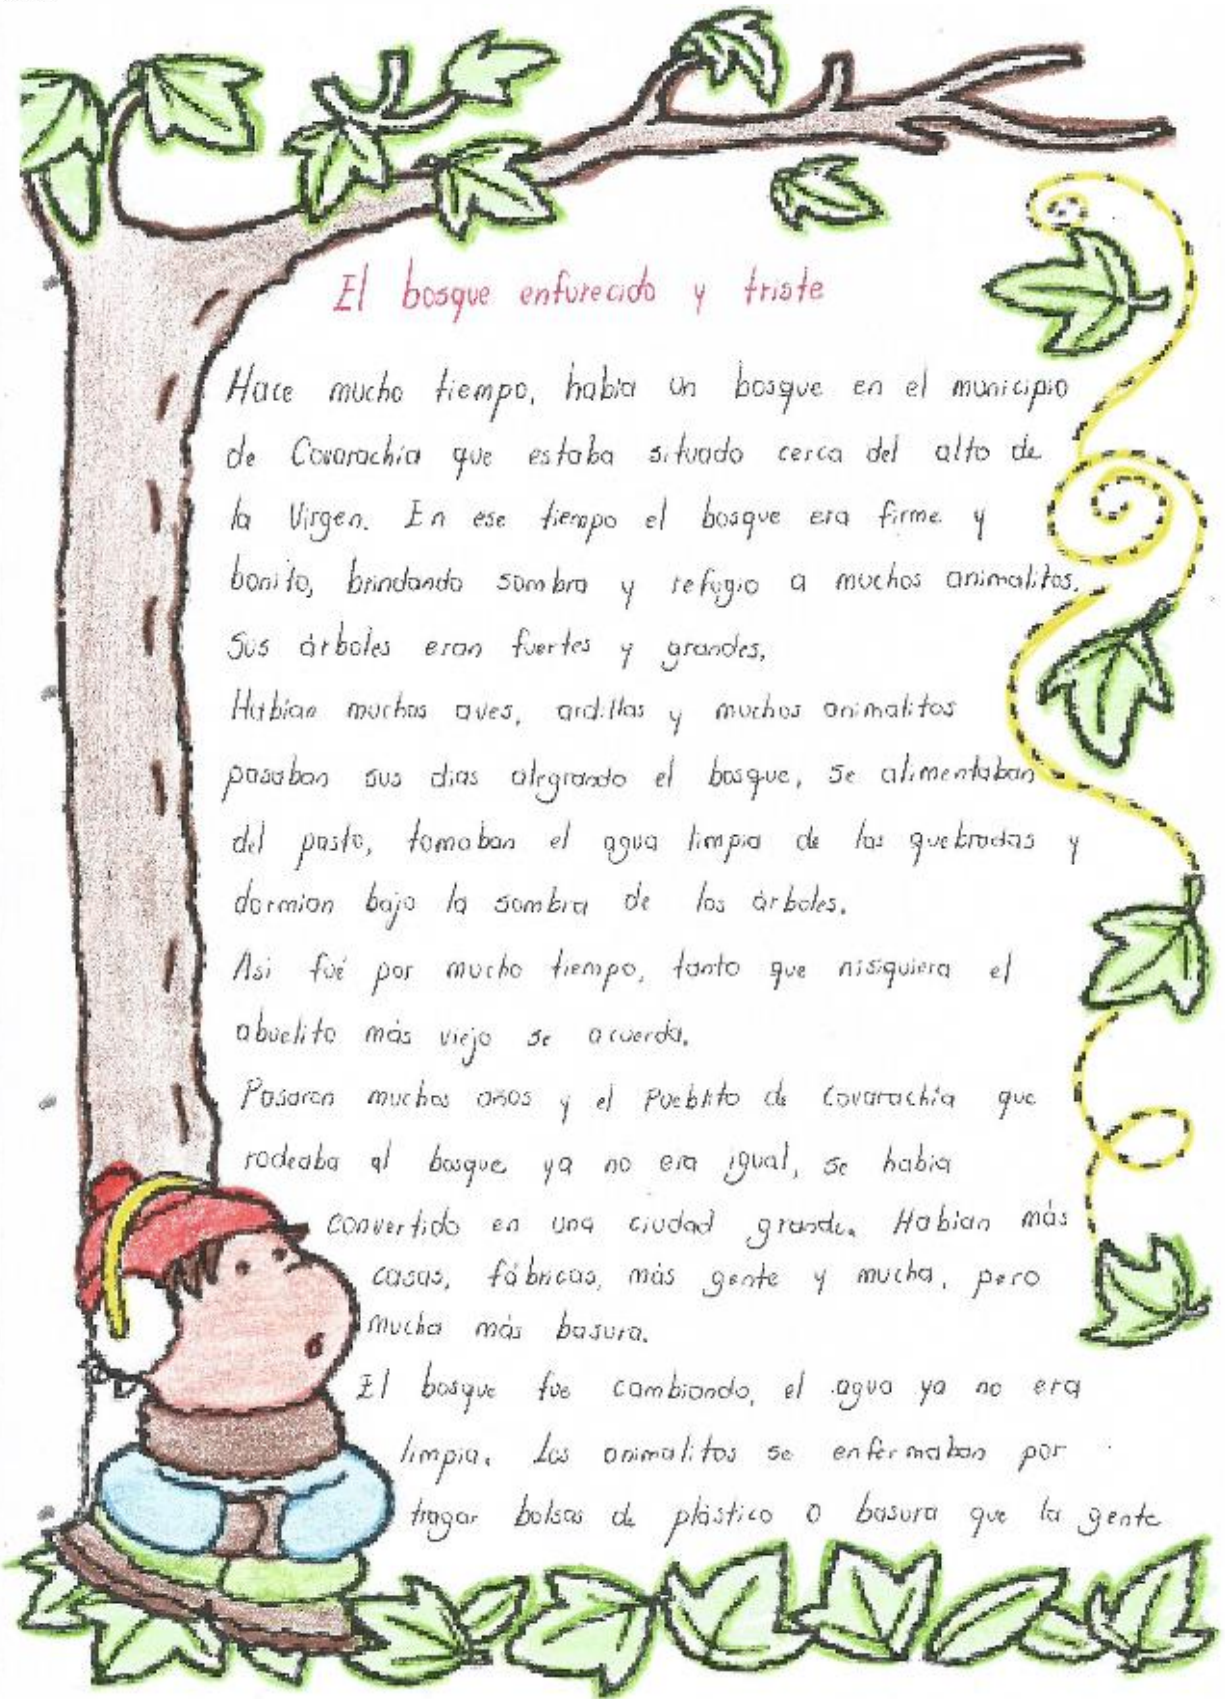 El bosque enfurecido y triste
Hace mucho tiempo, habia un bosque en el municipio
de Covarachía que estaba situado cerca del alto de
la Virgen. En ese tiempo el bosque era firme y
bonito, brindando sombra y refugio a muchos animalitos.
Sus árboles eran fuertes y grandes.
Habían muchas aves, ardillas y muchos animalitos
pasaban sus dias alegrando el bosque, se alimentaban
del pasto, tomaban el agua limpia de las quebradas y
dormian bajo la sombra de los árboles.
Asi fué por mucho tiempo, tanto que nisiquiera el
abuelito más viejo se acuerda.
Pasaron muchos años y el Pueblito de Covarachía que
rodeaba al bosque ya no era igual, se habia
convertido en una ciudad grande. Habian más
casas, fábricas, más gente y mucha, pero
mucha más basura.
El bosque fue cambiando, el agua ya no era
limpia. Los animalitos se enfermaban por
tragar bolsas de plástico o basura que la gente